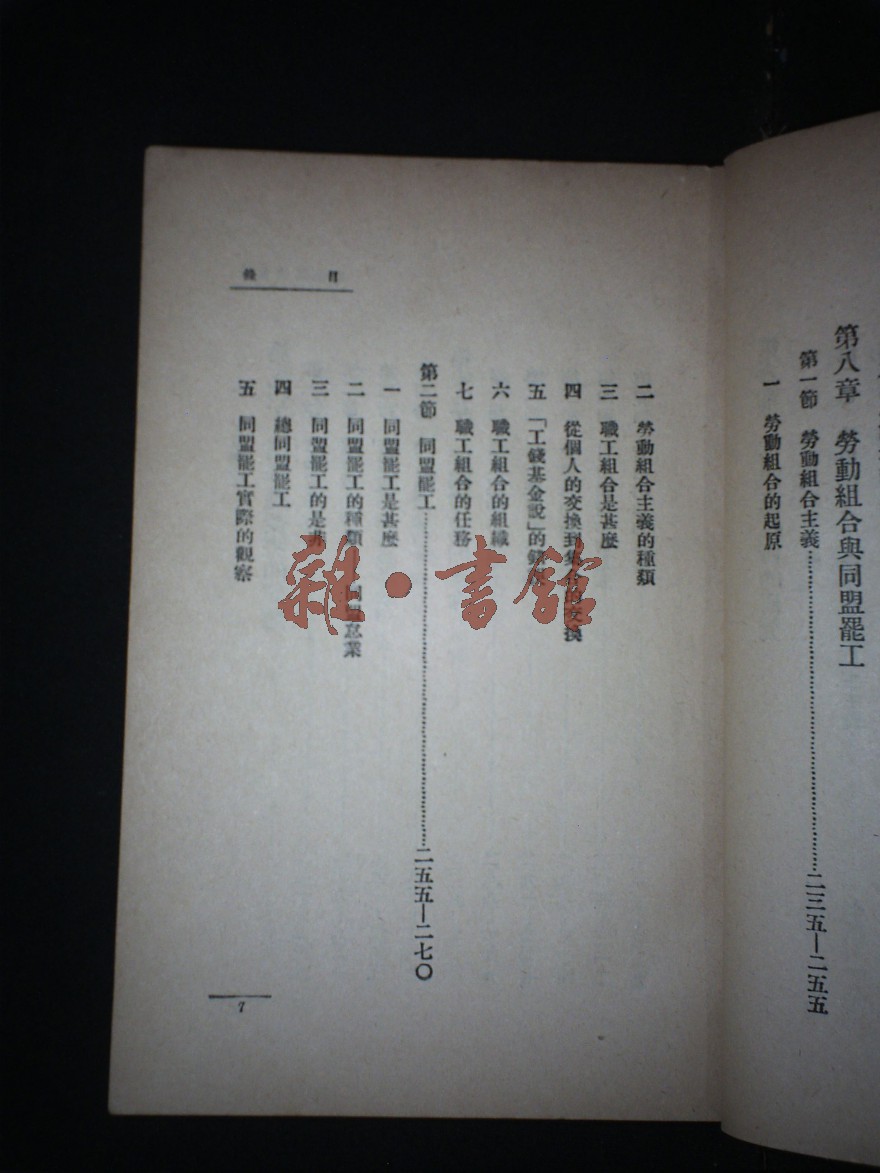 第八章 勞動組合與同盟罷工
第一節 勞動組合主義……二三五—二五五
一 勞動組合的起原
目錄
二 勞動組合主義的種類
三 職工組合是甚麼
四 從個人的交換到集合的交換
五 「工錢基金說」的
六 職工組合的組織
七 職工組合的任務
第二節 同盟罷工……二五五—二七〇
一 同盟罷工是甚麼
二 同盟罷工的種類 同盟怠業
三 同盟罷工的是非
四 總同盟罷工
五 同盟罷工實際的觀察
7
雜·書館